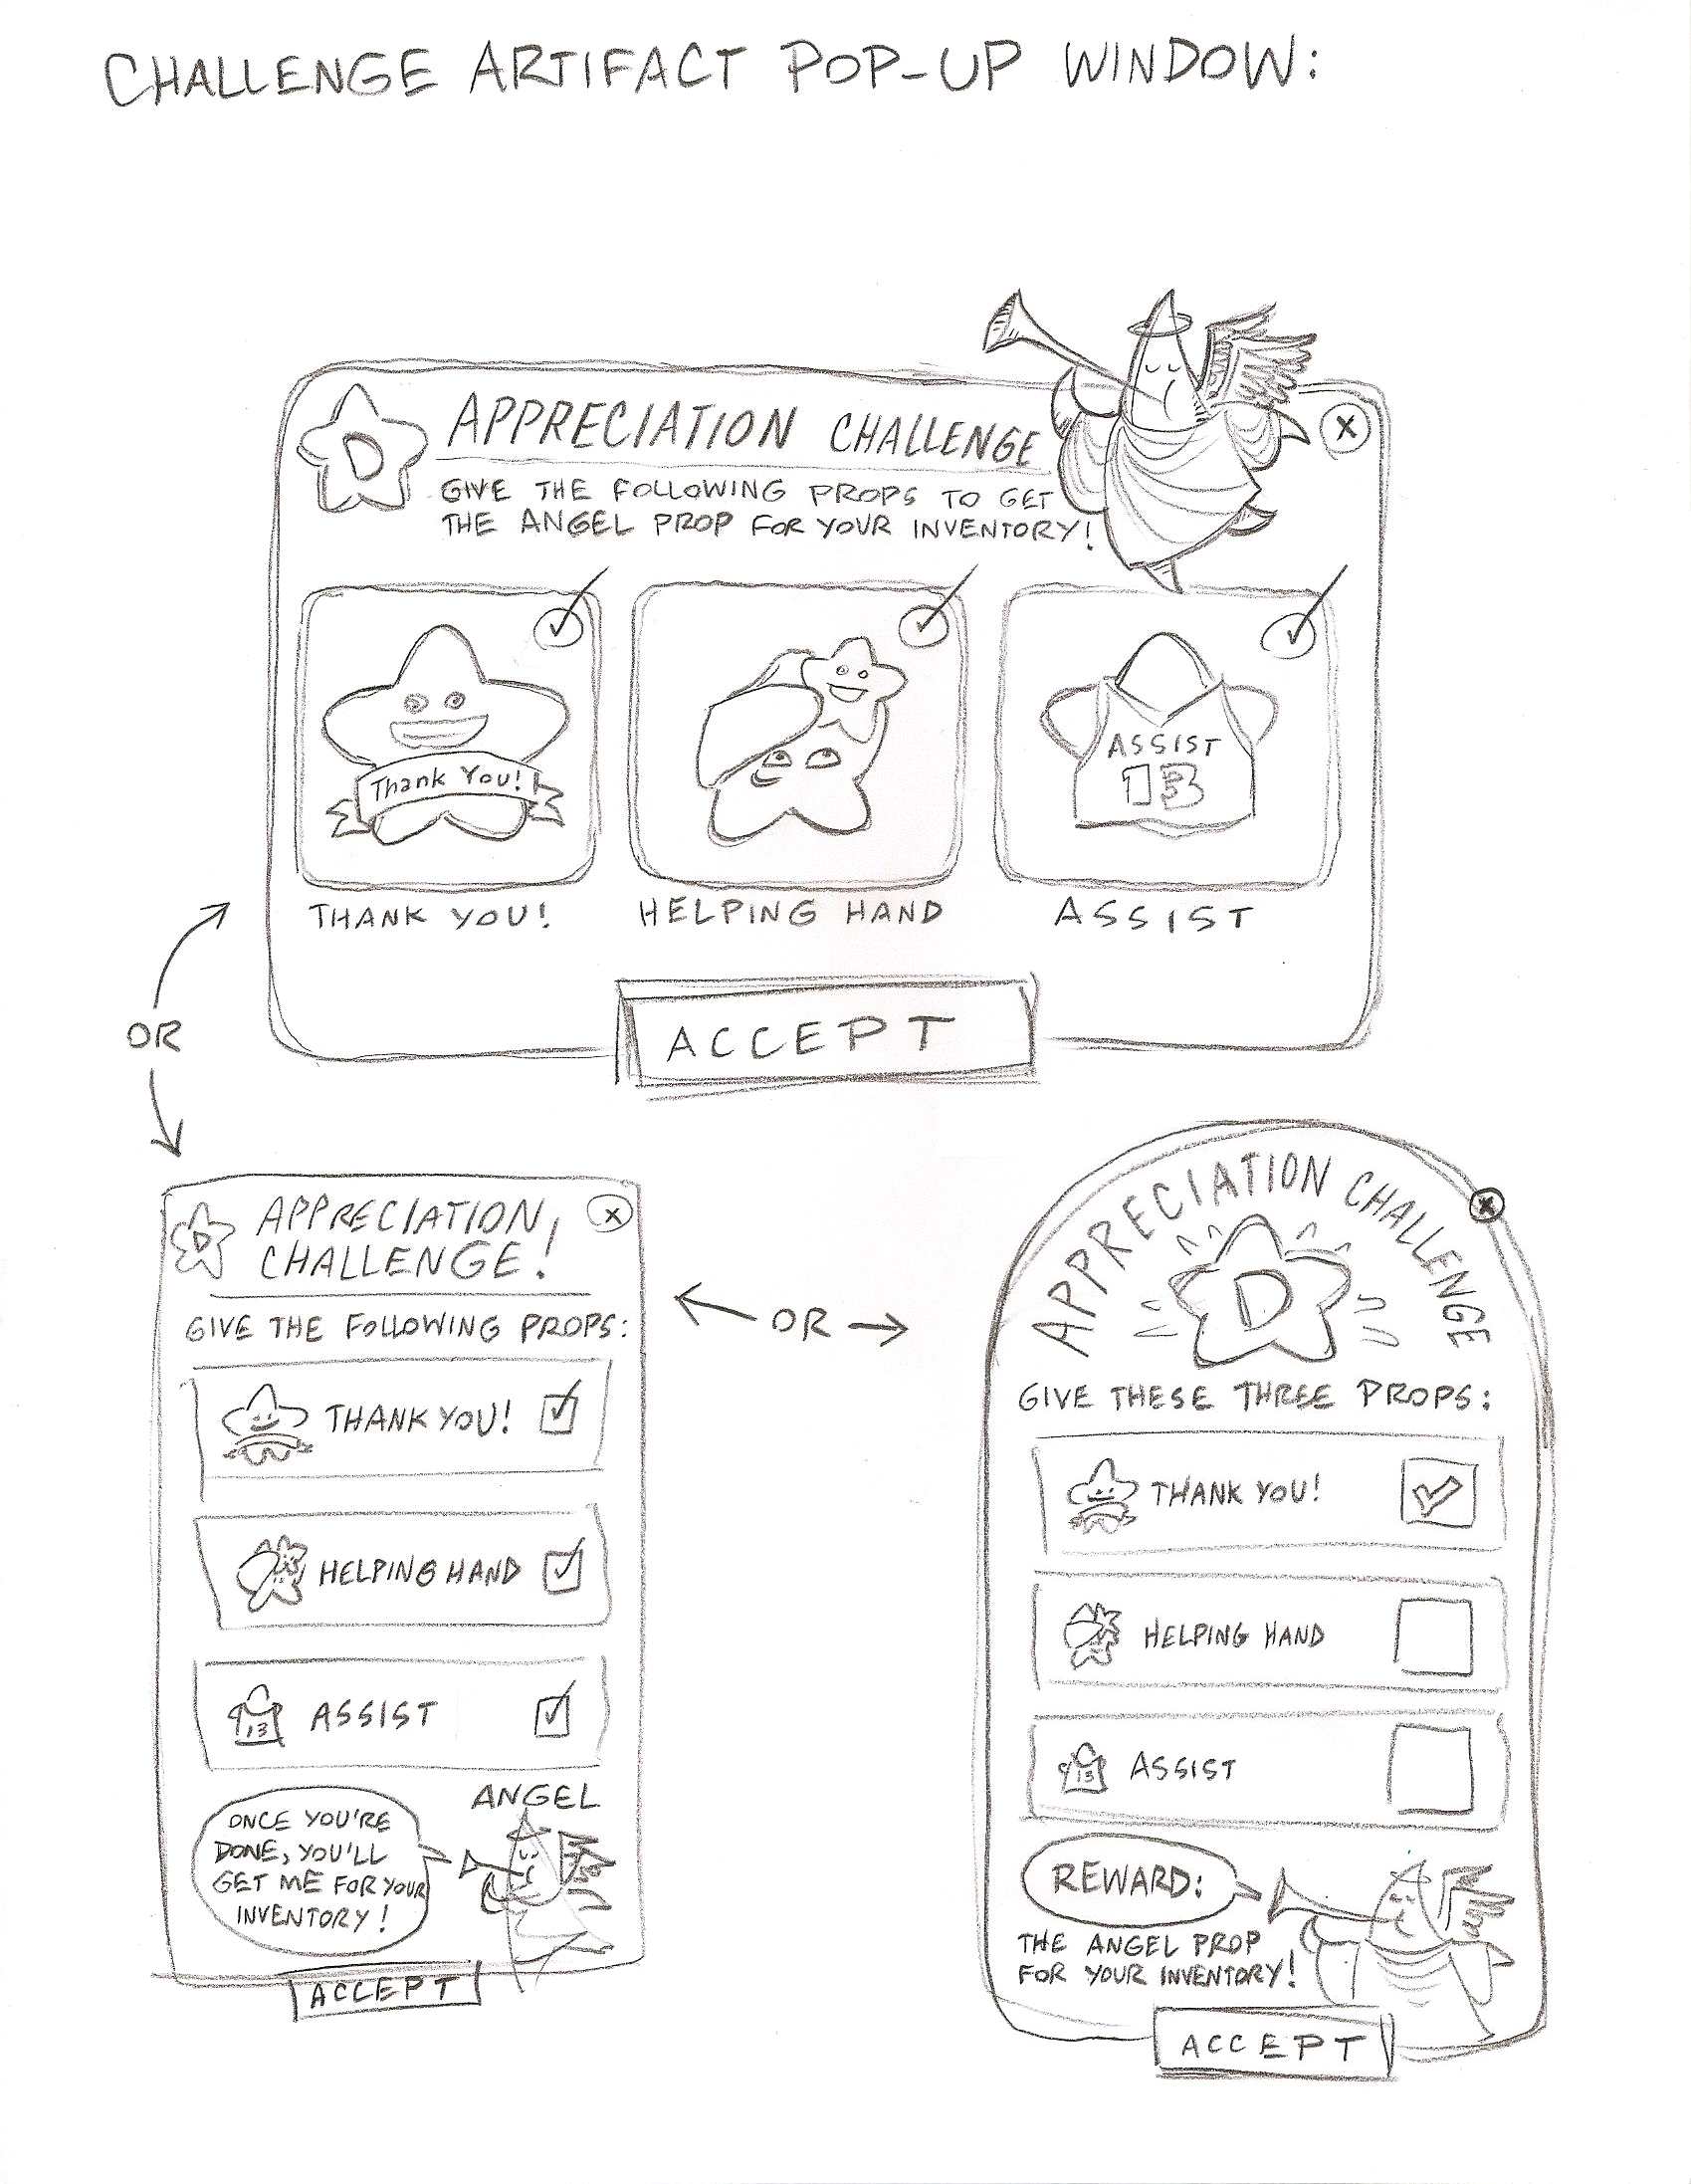 CHALLENGE ARTIFACT POP-UP WINDOW:
D
APPRECIATION CHALLENGE
X
GIVE THE FOLLOWING PROPS TO GET
THE ANGEL PROP FOR YOUR INVENTORY!
Thank You!
ASSIST
13
THANK YOU!
HELPING HAND
ASSIST
ACCEPT
OR
D
APPRECIATION
CHALLENGE!
X
GIVE THE FOLLOWING PROPS:
THANK YOU!
HELPING HAND
13
ASSIST
ANGEL
ONCE YOU'RE
DONE, YOU'LL
GET ME FOR YOUR
INVENTORY!
ACCEPT
OR
APPRECIATION CHALLENGE
X
D
GIVE THESE THREE PROPS:
THANK YOU!
HELPING HAND
13
ASSIST
REWARD:
THE ANGEL PROP
FOR YOUR INVENTORY!
ACCEPT